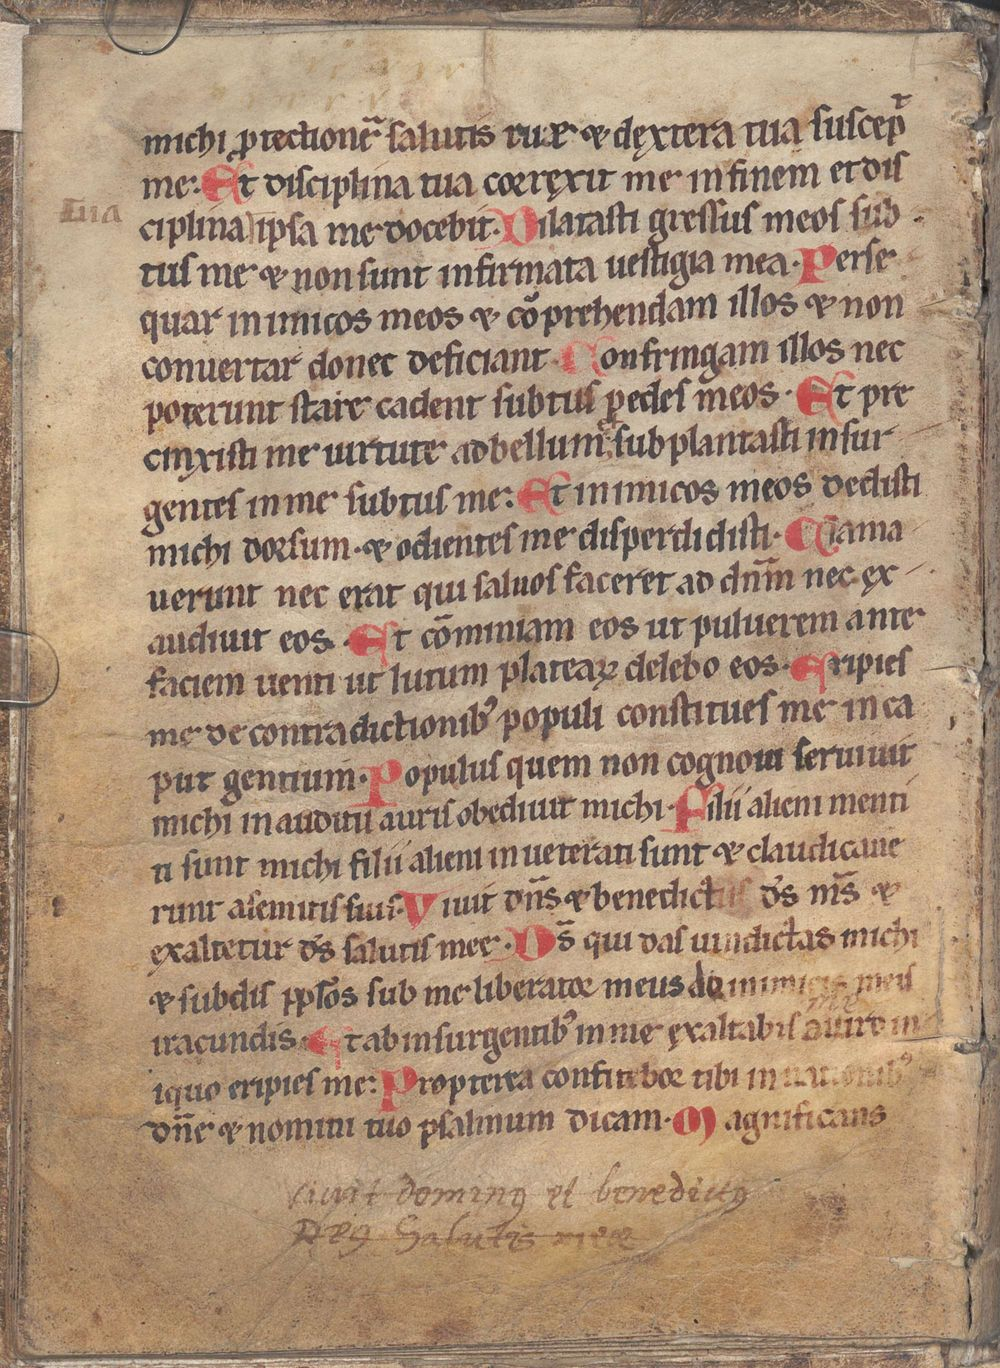 michi ꝓtectionē salutis tue ⁊ dęxtera tua suscep̄t
me: Et disciplina tua corręxit me in finem et dis
tua
ciplina ipsa me docebit· Dilatasti gressus meos sub
tus me ⁊ non sunt infirmata uestigia mea· Perse
quar inimicos meos ⁊ cōprehendam illos ⁊ non
conuertar donec deficiant· Confringam illos nec
poterunt stare cadent subtus pedes meos· Et pre
cinxisti me uirtute ad bellum; subplantasti insur
gentes in me subtus me: Et inimicos meos dedisti
michi dorsum· ⁊ odientes me disperdidisti· Clama
uerunt nec erat qui saluos faceret ad dn̄m nec ęx
audiuit eos· Et cōminiam eos ut puluerem ante
faciem uenti ut lutum plateaꝝ delebo eos· Eripies
me de contradictionibꝰ populi constitues me in ca
put gentium· Populus quem non cognoui seruiuit
michi in auditu auris obediuit michi· Filii alieni menti
ti sunt michi filii alieni inueterati sunt ⁊ claudicaue
runt a semitis suis· Viuit dn̄s ⁊ benedictus ds̄ ms̄ ⁊
exaltetur ds̄ salutis mee· Ds̄ qui das uindictas michi
⁊ subdis pplōs sub me liberator meus de inimicis meis
me
iracundis· Et ab insurgentibꝰ in me ęxaltabis a uiro in
iquo eripies me: Propterea confitebor tibi in nationibꝰ
dn̄e ⁊ nomini tuo psalmum dicam· Magnificans
uiuit dominꝰ et benedictꝰ
Deꝰ Salutis meæ